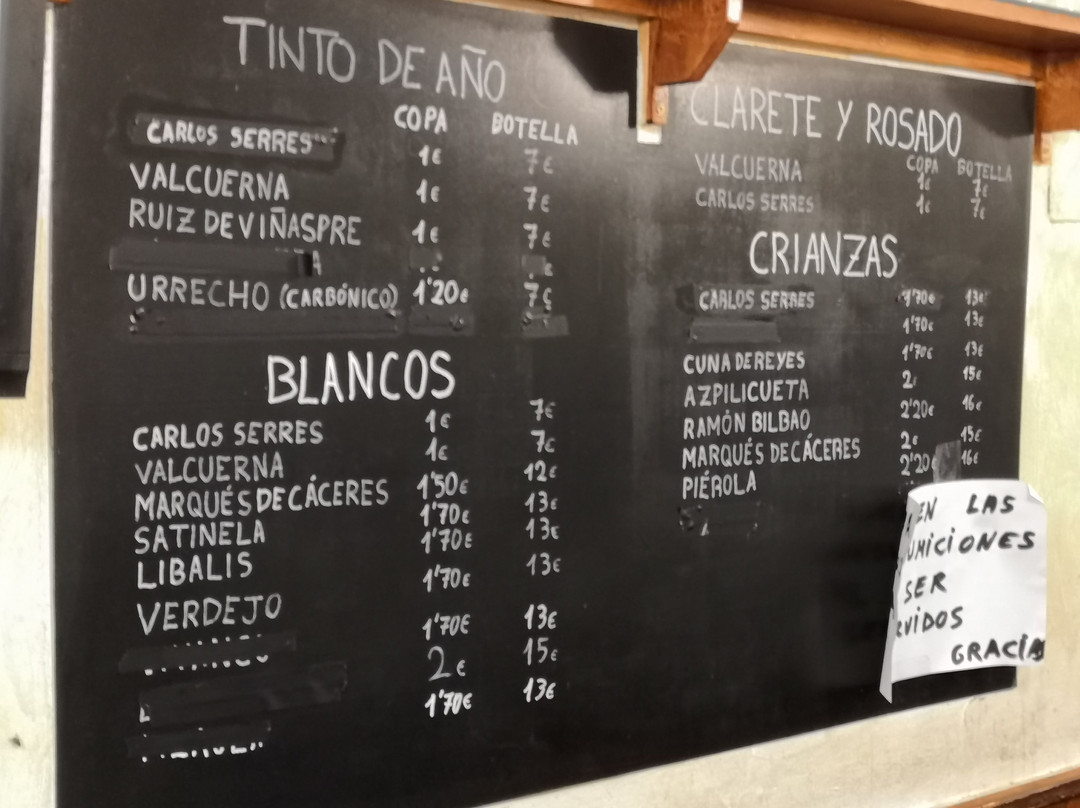 TINTO DE AÑO
COPA BOTELLA
CARLOS SERRES 1€ 7€
VALCUERNA 1€ 7€
RUIZ DE VIÑASPRE 1€ 7€
URRECHO (CARBÓNICO) 1'20€ 7€
BLANCOS
CARLOS SERRES 1€ 7€
VALCUERNA 1€ 7€
MARQUÉS DE CÁCERES 1'50€ 12€
SATINELA 1'70€ 13€
LIBALIS 1'70€ 13€
VERDEJO 1'70€ 13€
1'70€ 13€
2€ 15€
1'70€ 13€
CLARETE Y ROSADO
COPA BOTELLA
VALCUERNA 1€ 7€
CARLOS SERRES 1€ 7€
CRIANZAS
CARLOS SERRES 1'70€ 13€
1'70€ 13€
CUNA DE REYES 1'70€ 13€
AZPILICUETA 2€ 15€
RAMÓN BILBAO 2'20€ 16€
MARQUÉS DE CÁCERES 2€ 15€
PIÉROLA 2'20€ 16€
EN LAS
UMICIONES
SER
VIDOS
GRACIAS